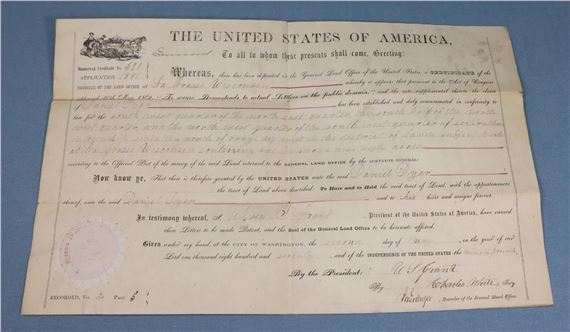 THE UNITED STATES OF AMERICA,
To all to whom these presents shall come, Greeting:
Homestead Certificate No. 581
APPLICATION 1885
Whereas, there has been deposited in the General Land Office of the United States, a CERTIFICATE of the
REGISTER OF THE LAND OFFICE at La Crosse Wisconsin whereby it appears that pursuant to the Act of Congress
approved 20th May, 1862, "To secure Homesteads to actual Settlers on the public domain," and the acts supplemental thereto, the claim
of Daniel Dyer has been established and duly consummated in conformity to
law for the south west quarter of the north east quarter, the south half of the north
west quarter, and the north west quarter of the south west quarter of section
in the district of Lands subject to sale
at La Crosse Wisconsin containing one hundred and sixty acres
according to the Official Plat of the survey of the said Land returned to the GENERAL LAND OFFICE by the SURVEYOR GENERAL:
Now know ye, That there is therefore granted by the UNITED STATES unto the said Daniel Dyer
the tract of Land above described: To Have and to Hold the said tract of Land, with the appurtenances
thereof, unto the said Daniel Dyer and to his heirs and assigns forever.
In testimony whereof, I, Ulysses S. Grant, President of the United States of America, have caused
these Letters to be made Patent, and the Seal of the General Land Office to be hereunto affixed.
Given under my hand, at the CITY OF WASHINGTON, the second day of May, in the year of our
Lord one thousand eight hundred and seventy, and of the INDEPENDENCE OF THE UNITED STATES the ninety fourth
By the President: U. S. Grant
By Charles White Secy
RECORDED, Vol. 2 Page 5 Recorder of the General Land Office.